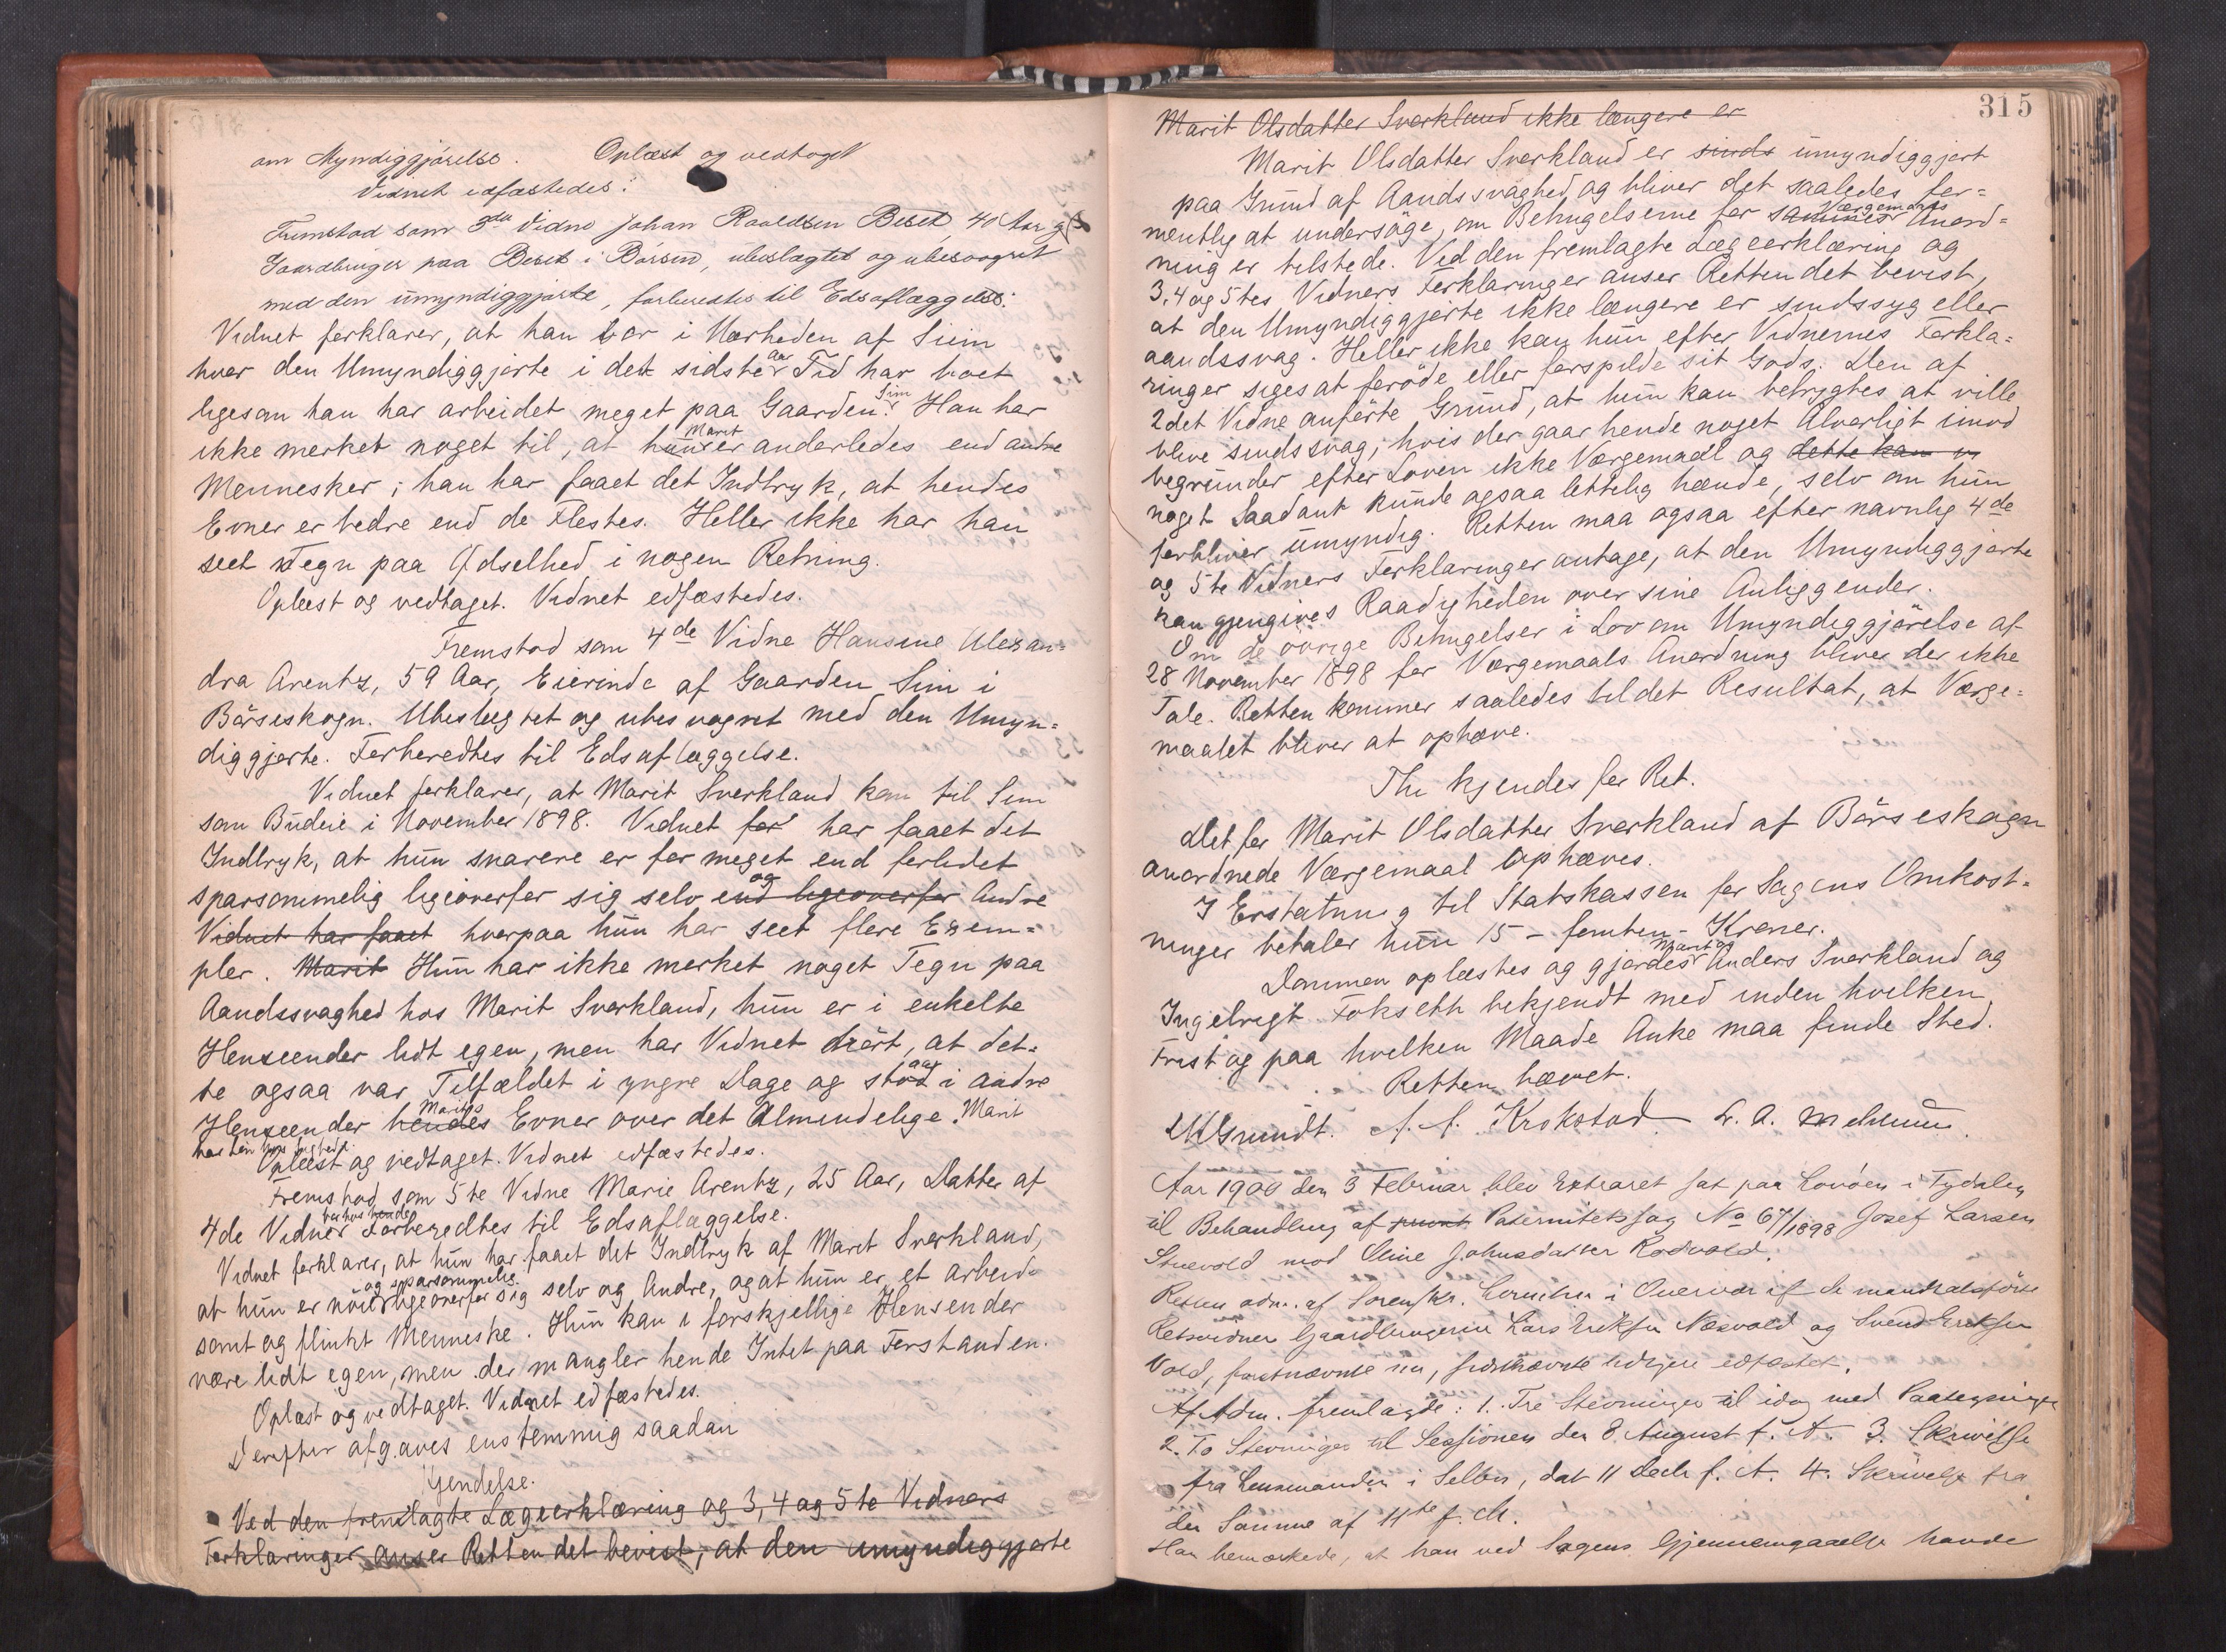 om Myndiggjörelse. Oplæst og vedtaget
Vidnet edfæstedes:
Fremstod som 3die Vidne Johan Roaldsen Beset, 40 Aar g
Gaardbruger paa Beset i Börsen, ubeslægtet og ubesvogret
med den umyndiggjorte, forberedtes til Edsaflæggelse:
Vidnet forklarer, at han bor i Nærheden af Sim
hvor den Umyndiggjorte i det sidste Aar Tid har boet
ligesom han har arbeidet meget paa Gaarden Sim. Han har
ikke merket noget til, at hun Marit er anderledes end andre
Mennesker; han har faaet det Indtryk, at hendes
Evner er bedre end de Flestes. Heller ikke har han
seet Tegn paa Ødselhed i nogen Retning.
Oplæst og vedtaget. Vidnet edfæstedes.
Fremstod som 4de Vidne Hansine Alexan-
dra Arentz, 59 Aar, Eierinde af Gaarden Sim i
Börseskogn. Ubeslegtet og ubesvogret med den Umyn-
diggjorte. Forberedtes til Edsaflæggelse.
Vidnet forklarer, at Marit Sverkland kom til Sim
som Budeie i November 1898. Vidnet for har faaet det
Indtryk, at hun snarere er for meget end forlidet
sparsommelig ligeoverfor sig selv og end ligeoverfor Andre
Vidnet har faaet hvorpaa hun har seet flere Exem-
pler. Marit Hun har ikke merket noget Tegn paa
Aandssvaghed hos Marit Sverkland, hun er i enkelte
Henseender lidt egen, men har Vidnet hört, at det-
te ogsaa var Tilfældet i yngre Dage og staar i andre
Henseender hendes Marits Evner over det Almindelige. Marit
har hun hos
Oplæst og vedtaget. Vidnet edfæstedes.
Fremstod som 5te Vidne Marie Arentz, 25 Aar, Datter af
4de Vidne bor hos hende Forberedtes til Edsaflæggelse.
Vidnet forklarer, at hun har faaet det Indtryk af Marit Sverkland,
at hun er nöiet og sparsommelig ligeoverfor sig selv og Andre, og at hun er et arbeid-
somt og flinkt Menneske. Hun kan i forskjellige Hensender
være lidt egen, men der mangler hende Intet paa Forstanden.
Oplæst og vedtaget. Vidnet edfæstedes.
Derefter afgaves enstemmig saadan
Kjendelse.
Ved den fremlagte Lægeerklæring og 3, 4 og 5te Vidners
Forklaringer anser Retten det bevist, at den umyndiggjorte
315
Marit Olsdatter Sverkland ikke længere er
Marit Olsdatter Sverkland er sinds umyndiggjort
paa Grund af Aandssvaghed og bliver det saaledes for-
mentlig at undersöge, om Betingelserne for sammes Værgemaals Anord-
ning er tilstede. Ved den fremlagte Lægeerklæring og
3, 4 og 5tes Vidners Forklaringer anser Retten det bevist,
at den Umyndiggjorte ikke længere er sindssyg eller
aandssvag. Heller ikke kan hun efter Vidnernes Forkla-
ringer siges at foröde eller forspilde sit Gods. Den af
2det Vidne anförte Grund, at hun kan befrygtes at ville
blive sindssvag, hvis der gaar hende noget Alvorligt imod
begrunder efter Loven ikke Værgemaal og dette kan
noget Saadant kunde ogsaa lettelig hænde, selv om hun
forbliver umyndig. Retten maa ogsaa efter navnlig 4de
og 5te Vidners Forklaringer antage, at den Umyndiggjorte
kan gjengives Raadigheden over sine Anliggender.
Om de övrige Betingelser i Lov om Umyndiggjörelse af
28 November 1898 for Værgemaals Anordning bliver der ikke
Tale. Retten kommer saaledes til det Resultat, at Værge-
maalet bliver at ophæve.
Thi kjendes for Ret.
Det for Marit Olsdatter Sverkland af Börseskogn
anordnede Værgemaal ophæves.
I Erstatning til Statskassen for Sagens Omkost-
ninger betaler hun 15 - femten - Kroner.
Dommen oplæstes og gjordes Marit og Anders Sverkland og
Ingebrigt Fokseth bekjendt med inden hvilken
Frist og paa hvilken Maade Anke maa finde Sted.
Retten hævet.
Grundt. Krokstad L. A.
Aar 1900 den 3 Februar blev Extraret sat paa Lovöen i Tydalen
til Behandling af Paternitetssag No 67/1898 Josef Larsen
Stuevold mod Oline Johnsdatter Rodvold.
Retten adm. af Sorenskr. i Overvær af de mandtalsförte
Retsvidner Gaardbrugerne Lars Eriksen Næsvold og Svend Eriksen
Vold, förstnævnte nu, sidstnævnte tidligere edfæstet.
Af Adm. fremlagde: 1. Tre Stevninger til idag med Paategninger
2. To Stevninger til Sessionen den 8 August f. A. 3. Skrivelse
fra Lensmanden i Selbu, dat 11 Decbr f. A. 4. Skrivelse fra
den Samme af 11te f. M.
Han bemærkede, at han ved Sagens Gjennemgaaelse havde